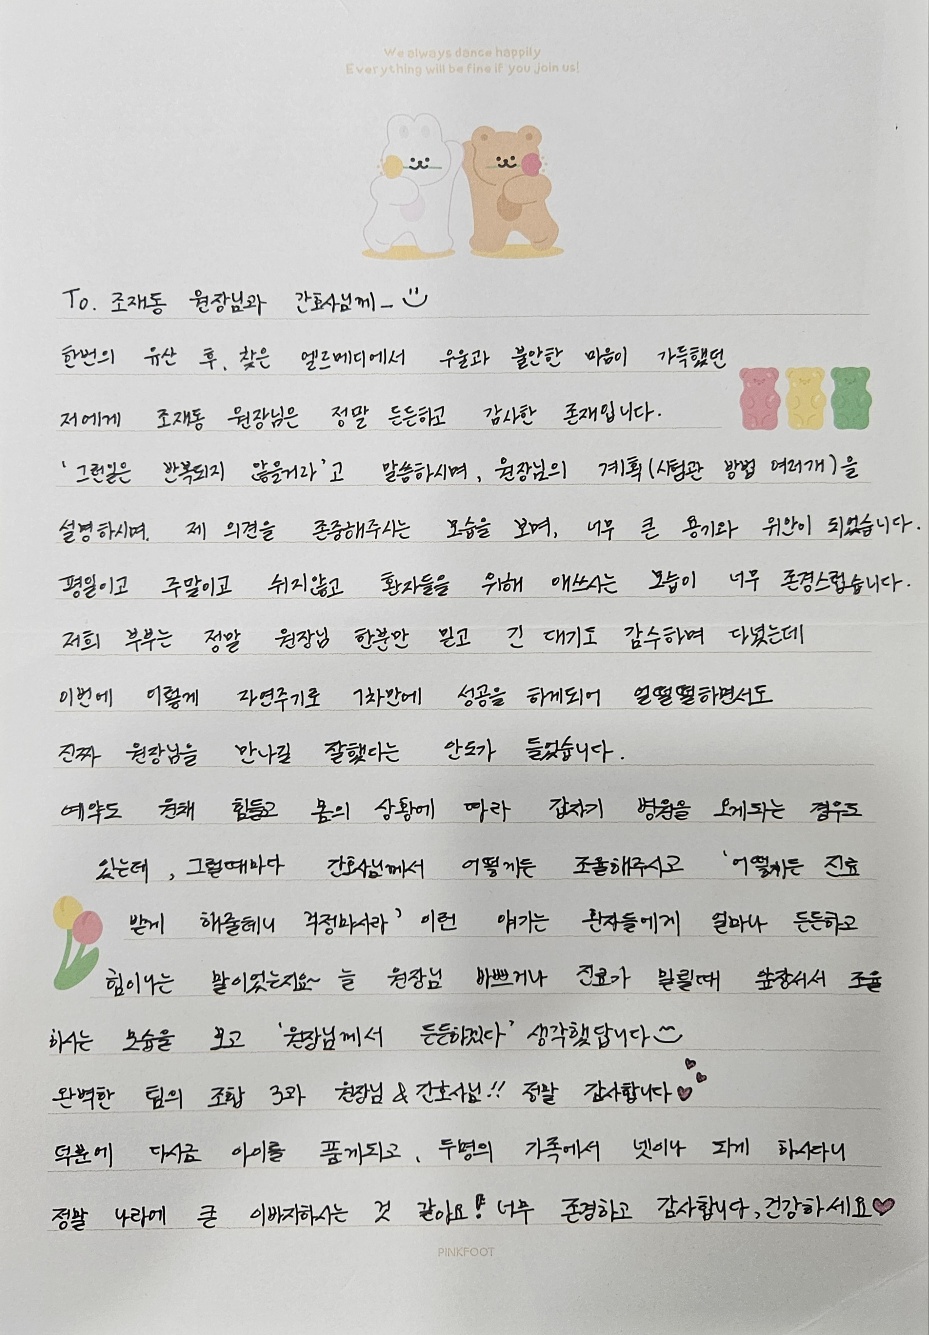 We always dance happily
Everything will be fine if you join us!
To. 조재동 원장님과 간호사님께_
한번의 유산 후, 찾은 엘르메디에서 우울과 불안한 마음이 가득했던
저에게 조재동 원장님은 정말 든든하고 감사한 존재입니다.
'그런일은 반복되지 않을거라'고 말씀하시며, 원장님의 계획(시험관 방법 여러개)을
설명하시며, 제 의견을 존중해주시는 모습을 보며, 너무 큰 용기와 위안이 되었습니다.
평일이고 주말이고 쉬지않고 환자들을 위해 애쓰시는 모습이 너무 존경스럽습니다.
저희 부부는 정말 원장님 한분만 믿고 긴 대기도 감수하며 다녔는데
이번에 이렇게 자연주기로 1차만에 성공을 하게되어 얼떨떨하면서도
진짜 원장님을 만나길 잘했다는 안도가 들었습니다.
예약도 원채 힘들고 몸의 상황에 따라 갑자기 병원을 오게되는 경우도
있는데, 그럴때마다 간호사님께서 어떻게든 조율해주시고 '어떻게든 진료
받게 해줄테니 걱정마시라' 이런 얘기는 환자들에게 얼마나 든든하고
힘이나는 말이었는지요~ 늘 원장님 바쁘거나 진료가 밀릴때 앞장서서 조율
하시는 모습을 보고 '원장님께서 든든하겠다' 생각했답니다
완벽한 팀의 조합 3과 원장님 & 간호사님!! 정말 감사합니다
덕분에 다시금 아이를 품게되고, 두명의 가족에서 넷이나 되게 하시다니
정말 나라에 큰 이바지하시는 것 같아요! 너무 존경하고 감사합니다, 건강하세요
PINKFOOT